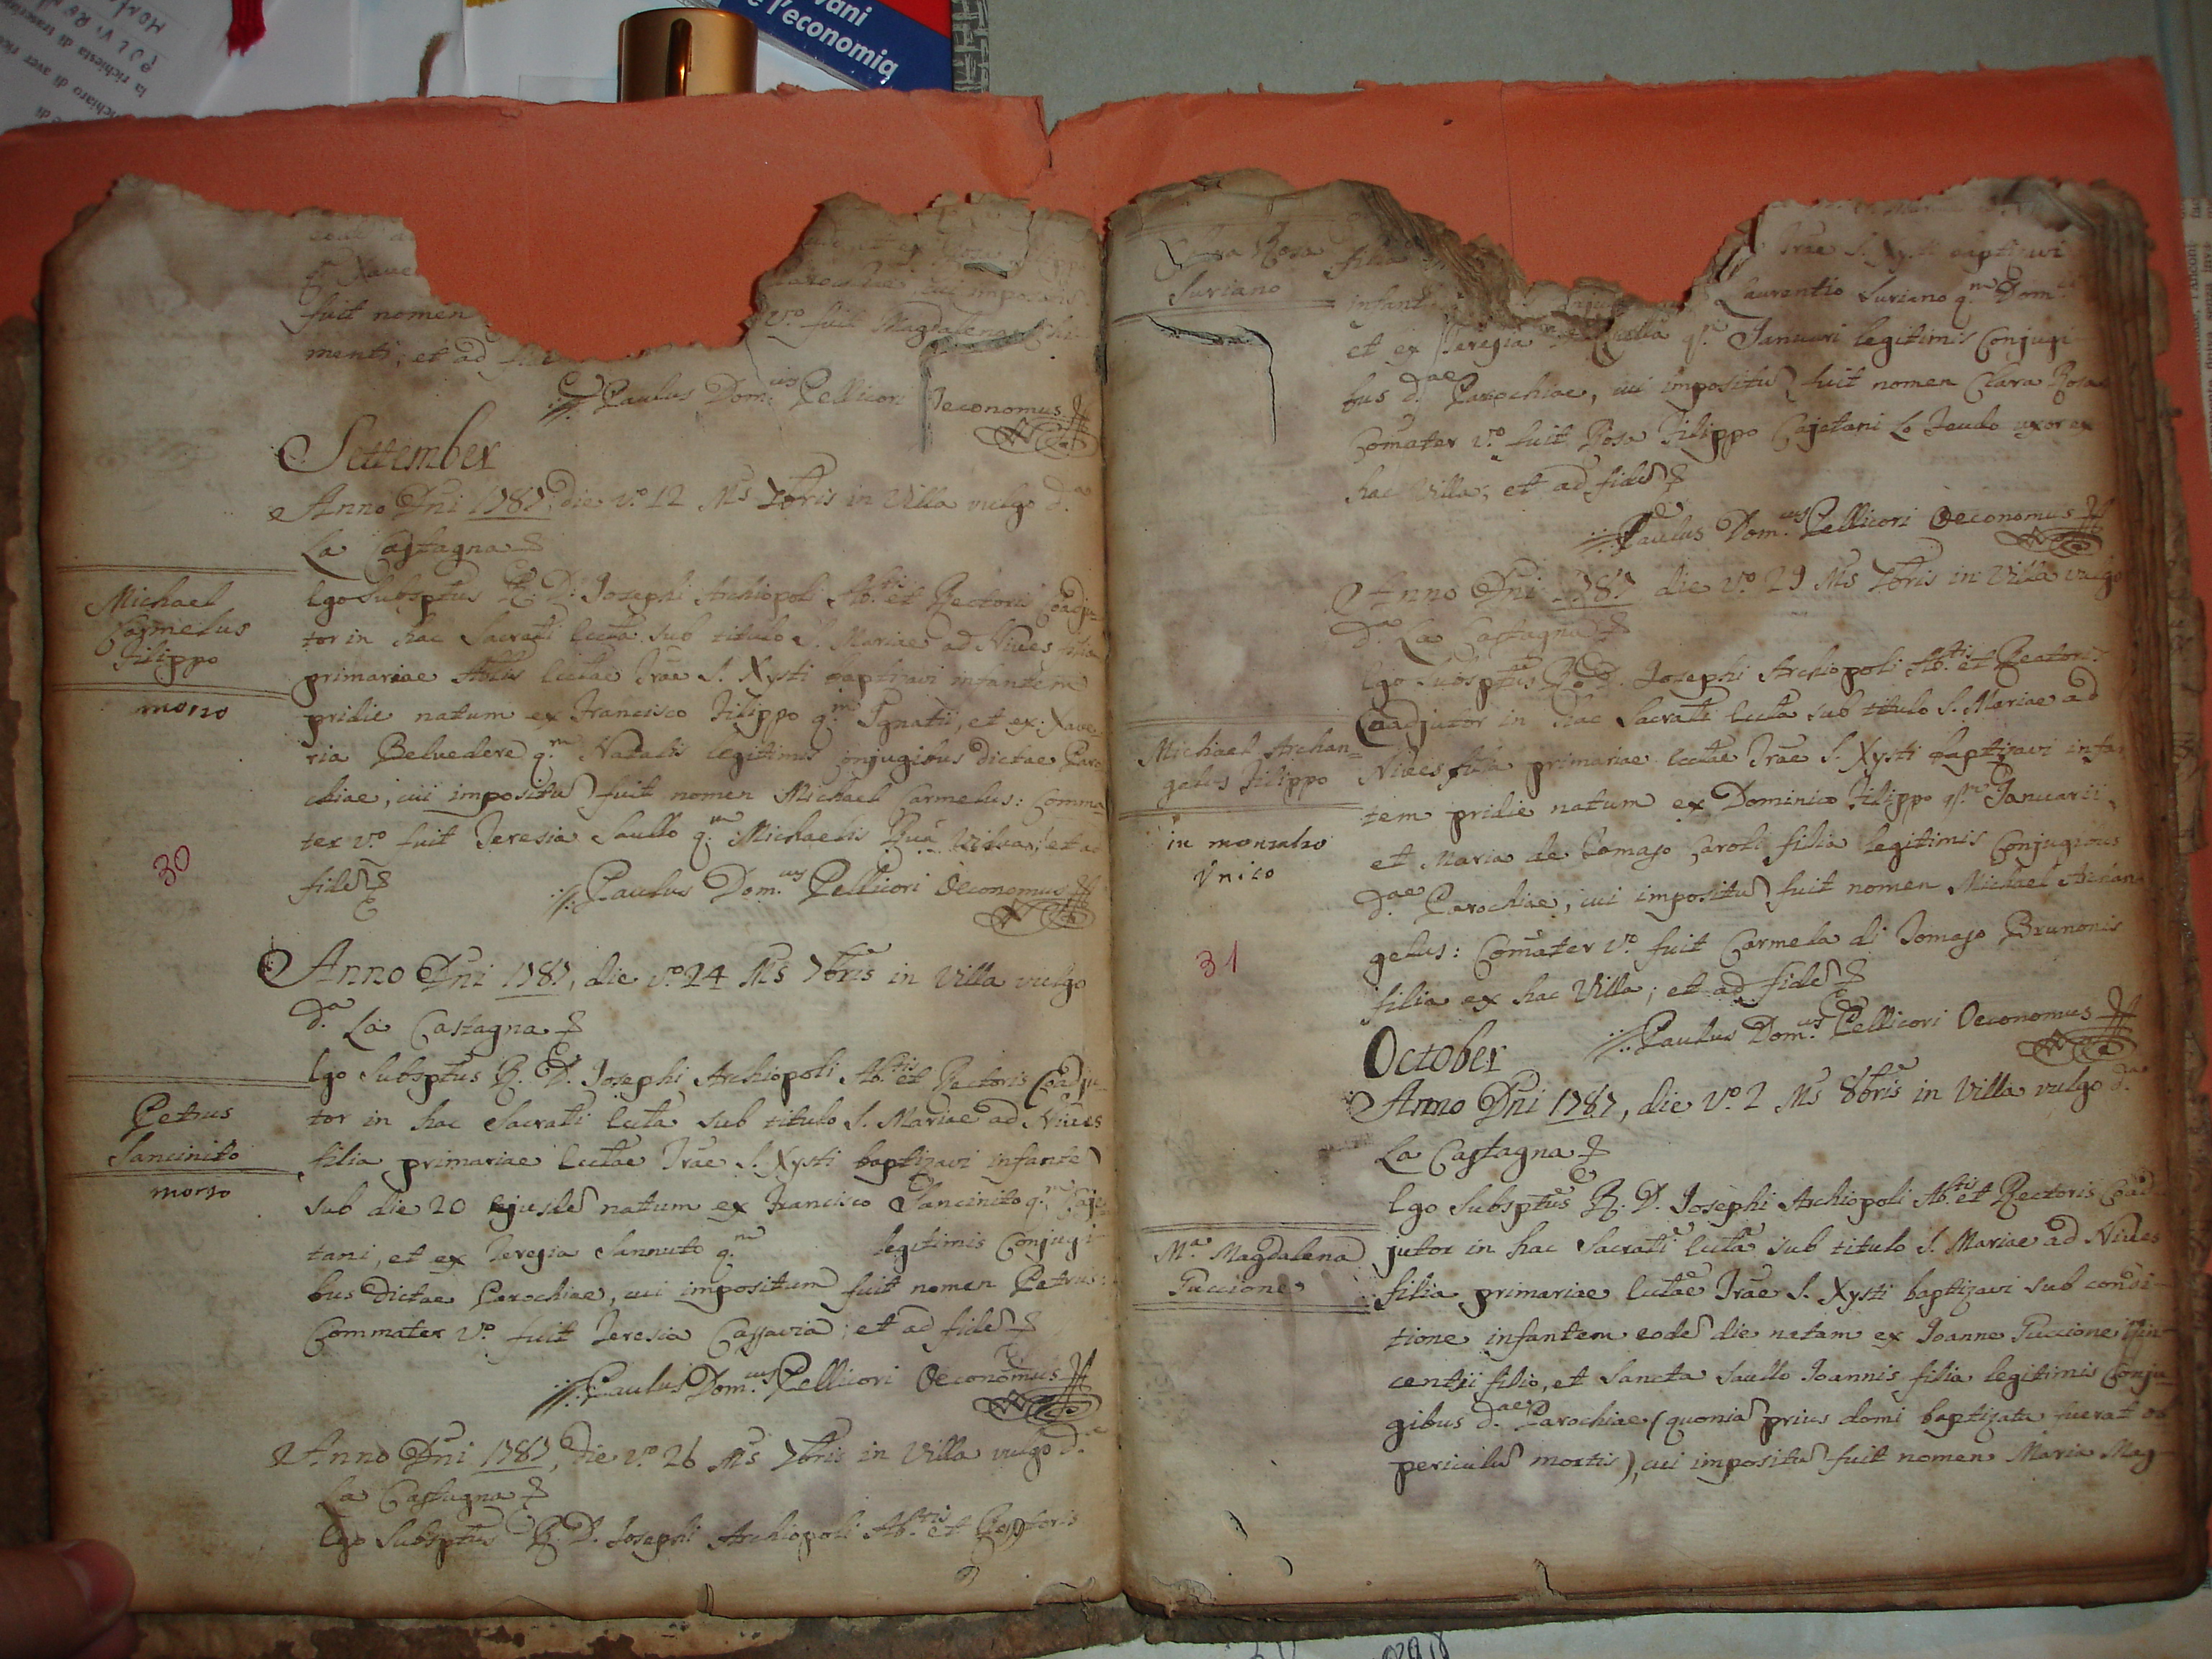 vani
e l'economia
la richiesta di
di aver
fuit nomen
menti, et ad
Vo. fuit Magdalena
Paulus Dom.cus Pellicori Oeconomus
Settember
Anno Dni 1787, die vo. 12 Ms 7bris in Villa vulgo d.a
La Castagna
Michael
Carmelus
Filippo
morso
Ego Subsptus R. D. Josephi Archiopoli Ab.tis et Rectoris Coadju-
tor in hac Sacrati Eccta sub titulo S. Mariae ad Nives filia
primariae Ecctae Trae S. Xysti baptizavi infantem
pridie natum ex Francisco Filippo q.m Ignatii, et ex Xave-
ria Belvedere q.m Natalis legitimis conjugibus dictae Paro
chiae, cui impositu fuit nomen Michael Carmelus: Comma
ter vo. fuit Teresia Saullo q.m Michaelis et ad
fide
30
Paulus Dom.cus Pellicori Oeconomus
Anno Dni 1787, die vo. 24 Ms 7bris in Villa vulgo
d.a La Castagna
Petrus
Sancinito
morso
Ego Subsptus R. D. Josephi Archiopoli Ab.tis et Rectoris Coadju-
tor in hac Sacrati Eccta sub titulo S. Mariae ad Nives
filia primariae Ecctae Trae S. Xysti baptizavi infante
sub die 20 ejusde natum ex Francisco Sancinito q.m Caje
tani, et ex Teresia Iannuto q.m legitimis Conjugi-
bus dictae Parochiae, cui impositum fuit nomen Petrus:
Commater vo. fuit Teresia Cassavia; et ad fide
Paulus Dom.cus Pellicori Oeconomus
Anno Dni 1787, die vo. 26 Ms 7bris in Villa vulgo d.a
La Castagna
Ego Subsptus R. D. Josephi Archiopoli Ab.tis et Rectoris
Clara Rosa
Suriano
filia Trae S. Xysti baptizavi
infant Laurentio Suriano q.m Dom.ci
et ex Teresia q.m Januari legitimis Conjugi
bus d.ae Parochiae, cui impositu fuit nomen Clara Rosa
Comater vo. fuit Rosa Filippo Cajetani Lo Feudo uxor ex
hac Villa; et ad fide
Paulus Dom.cus Pellicori Oeconomus
Anno Dni 1787 die vo. 29 Ms 7bris in Villa vulgo
d.a La Castagna
Michael Archan-
gelus Filippo
in monzalvo
Vnico
31
Ego Subsptus R. D. Josephi Archiopoli Ab.tis et Rectoris
Coadjutor in hac Sacrati Eccta sub titulo S. Mariae ad
Nives filia primariae Ecctae Trae S. Xysti baptizavi infan
tem pridie natum ex Dominico Filippo q.m Januarii,
et Maria de Tomaso Caroli filia legitimis Conjugibus
d.ae Parochiae, cui impositu fuit nomen Michael Archan
gelus: Comater vo. fuit Carmela di Tomaso Brunonis
filia ex hac Villa; et ad fide
Paulus Dom.cus Pellicori Oeconomus
October
Anno Dni 1787, die vo. 2 Ms 8bris in Villa vulgo d.a
La Castagna
M.a Magdalena
Puccione
Ego Subsptus R. D. Josephi Archiopoli Ab.tis et Rectoris Coad
jutor in hac Sacrati Eccta sub titulo S. Mariae ad Nives
filia primariae Ecctae Trae S. Xysti baptizavi sub condi-
tione infantem eode die natam ex Joanne Puccione Vin-
centii filio, et Sancta Saullo Joannis filia legitimis Conju-
gibus d.ae Parochiae (quonia prius domi baptizata fuerat ob
periculu mortis), cui impositu fuit nomen Maria Mag-